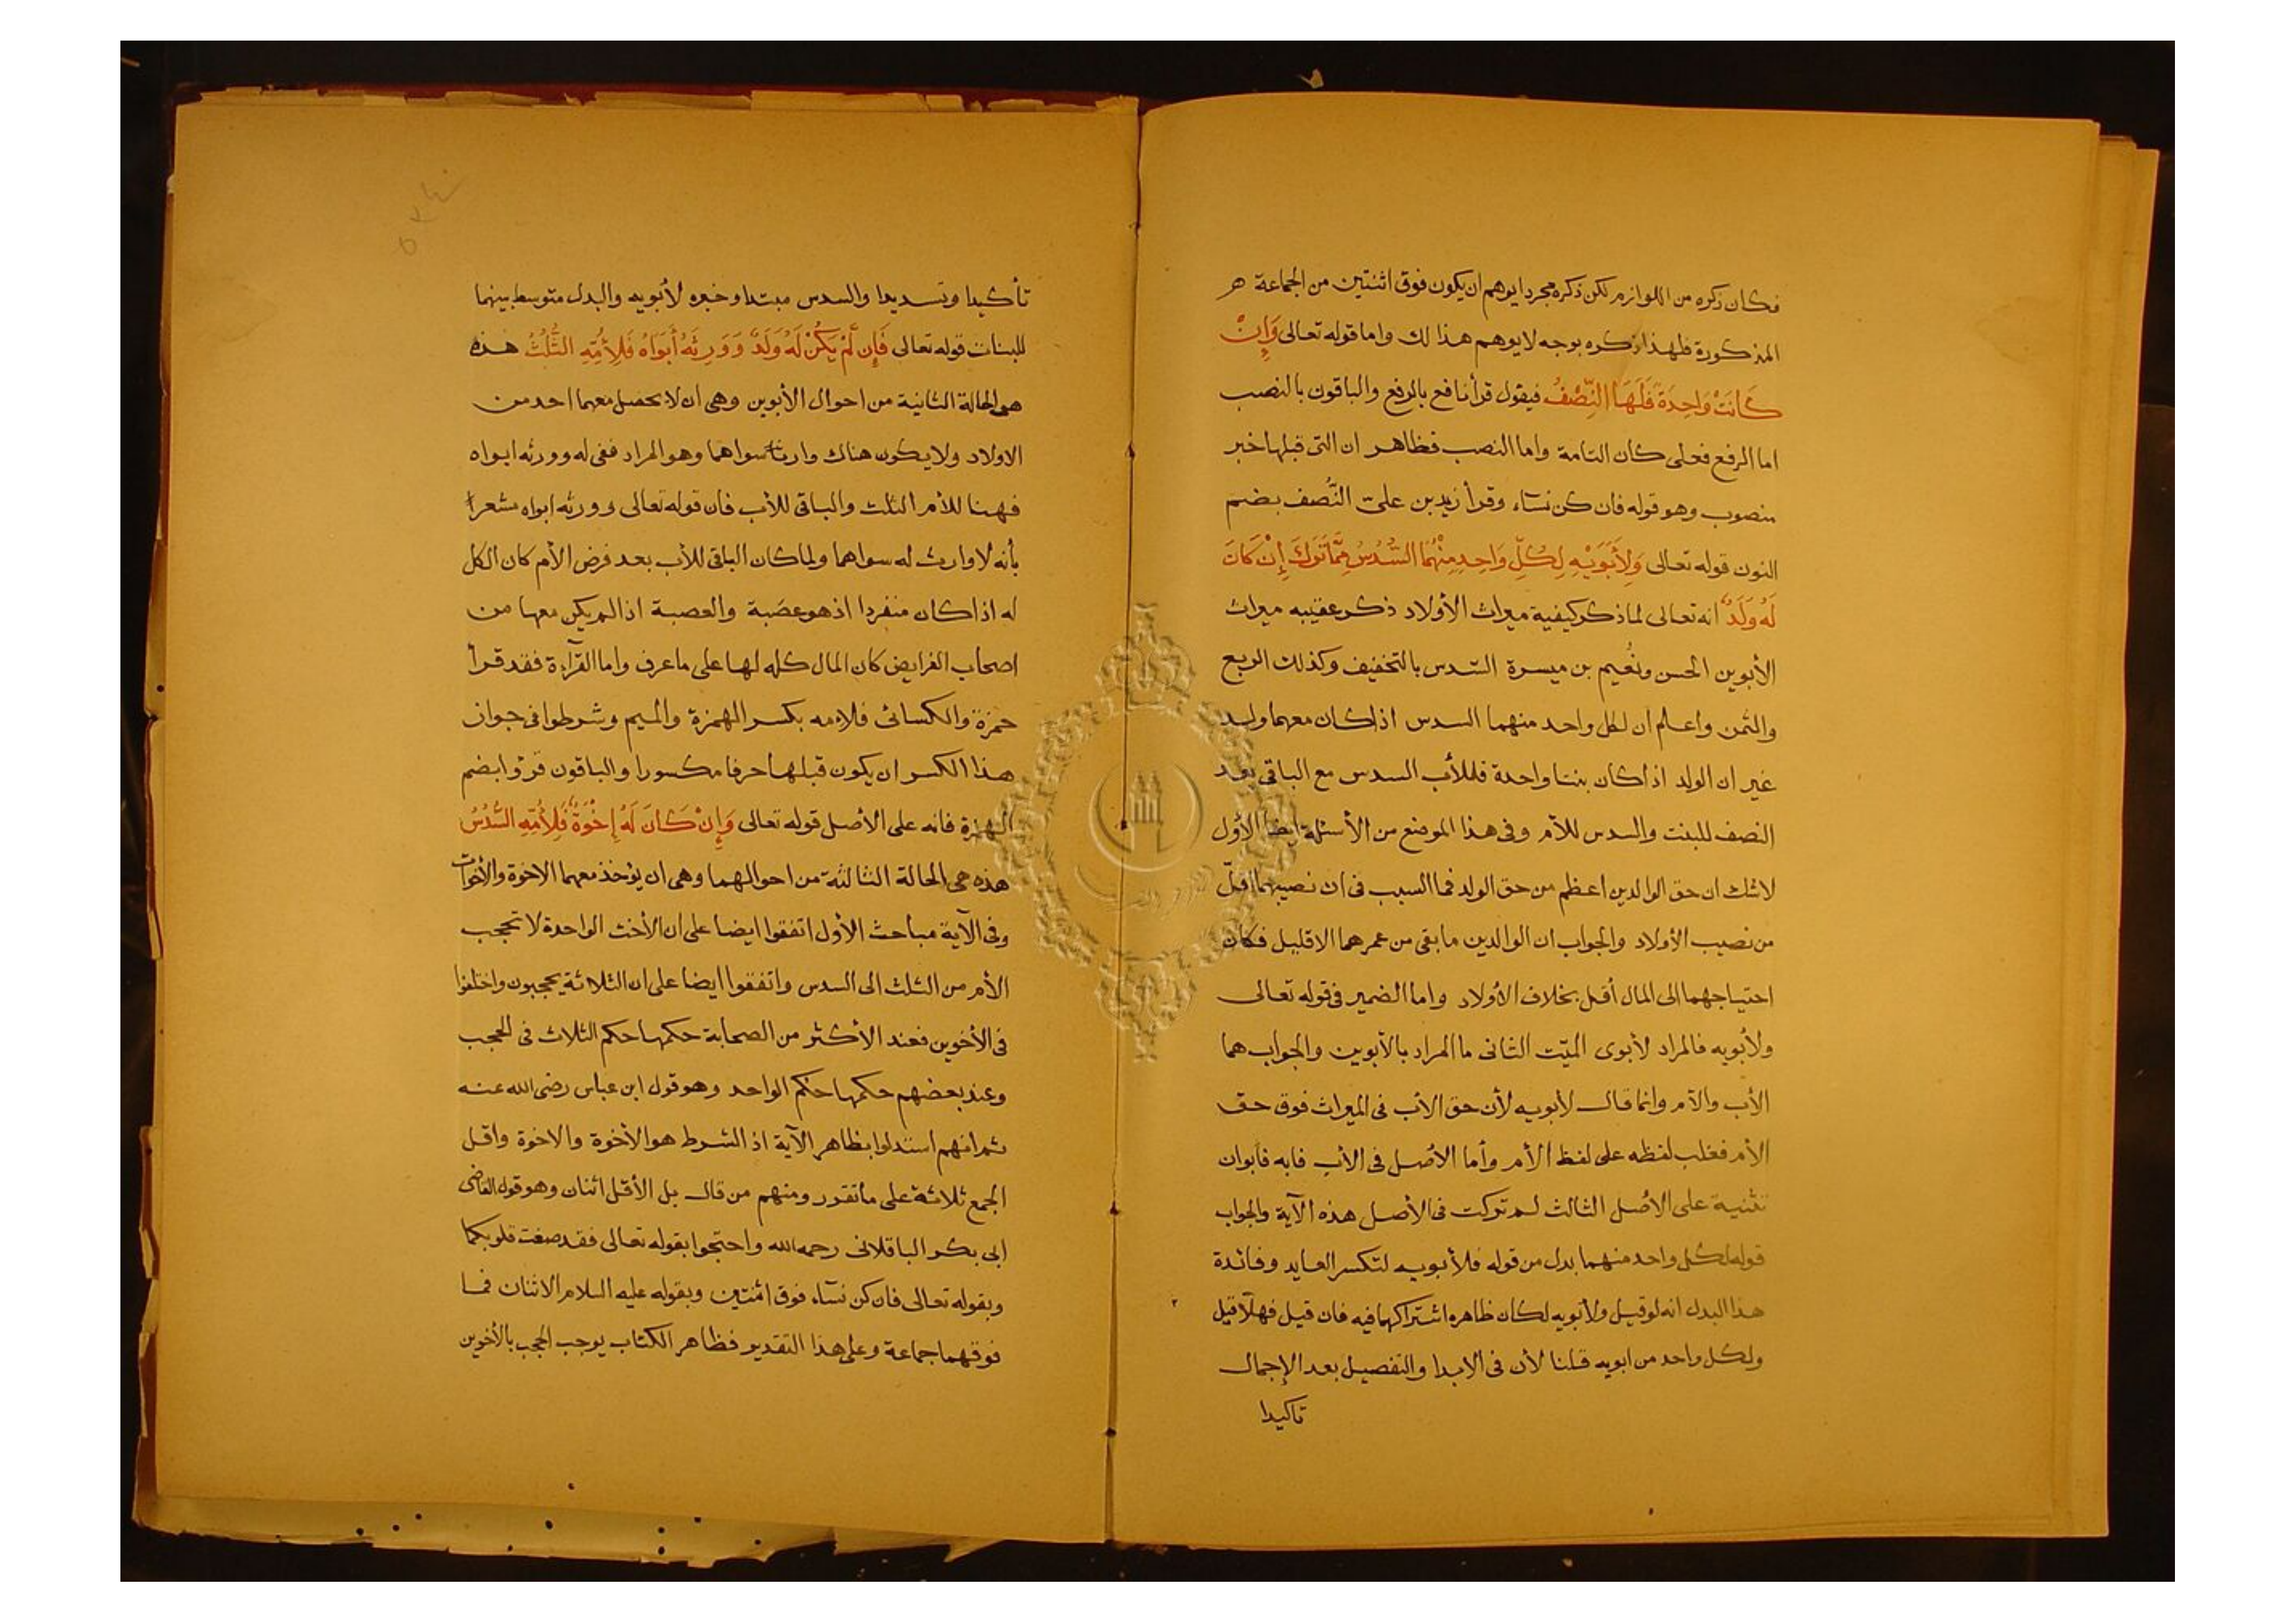 فكان ذكره من اللوازم لكن ذكره مجردا يوهم ان يكون فوق اثنتين من الجماعة هر
المذكورة فلهذا ذكره بوجه لا يوهم هذا لك واما قوله تعالى وَإِنْ
كَانَتْ وَاحِدَةً فَلَهَا النِّصْفُ فيقول قرأ نافع بالرفع والباقون بالنصب
اما الرفع فعلى كان التامة واما النصب فظاهر ان التى قبلها خبر
منصوب وهو قوله فان كن نسآء وقرأ زيد بن علىّ النُّصف بضم
النون قوله تعالى وَلِأَبَوَيْهِ لِكُلِّ وَاحِدٍ مِنْهُمَا السُّدُسُ مِمَّا تَرَكَ إِنْ كَانَ
لَهُ وَلَدٌ انه تعالى لما ذكر كيفية ميراث الأولاد ذكر عقيبه ميراث
الأبوين الحسن ونُعيم بن ميسرة السّدس بالتخفيف وكذلك الربع
والثمن واعلم ان لكل واحد منهما السدس اذا كان معهما ولد
غير ان الولد اذا كان بنتا واحدة فللأب السدس مع الباقى بعد
النصف للبنت والسدس للأم وفى هذا الموضع من الأسئلة ايضا الأول
لا شك ان حق الوالدين اعظم من حق الولد فما السبب فى ان نصيبهما اقلّ
من نصيب الأولاد والجواب ان الوالدين ما بقى من عمرهما الا قليل فكان
احتياجهما الى المال أقل بخلاف الأولاد واما الضمير فى قوله تعالى
ولأبويه فالمراد لأبوى الميّت الثانى ما المراد بالأبوين والجواب هما
الأب والأم وانما قال لأبويه لأن حق الأب فى الميراث فوق حق
الأم فغلب لفظه على لفظ الأم وأما الأصل فى الأب فابه فأبوان
تثنية على الأصل الثالث لم تركت فى الأصل هذه الآية والجواب
قوله لكل واحد منهما بدل من قوله فلأبويه لتكسر العايد وفائدة
هذا البدل انه لو قيل ولأبويه لكان ظاهره اشتراكهما فيه فان قيل فهلّا قيل
ولكل واحد من ابويه قلنا لأن فى الابدا والتفصيل بعد الإجمال
تاكيدا
تأكيدا وتسديدا والسدس مبتدا وخبره لأبويه والبدل متوسط بينهما
للبنات قوله تعالى فَإِن لَّمْ يَكُنْ لَهُ وَلَدٌ وَوَرِثَهُ أَبَوَاهُ فَلِأُمِّهِ الثُّلُثُ هذه
هى الحالة الثانية من احوال الأبوين وهى ان لا يحصل معهما احد من
الاولاد ولا يكون هناك وارث سواهما وهو المراد ففى له وورثه ابواه
فهنا للأم الثلث والباقى للأب فان قوله تعالى وورثه ابواه مشعرا
بأنه لا وارث له سواهما ولما كان الباقى للأب بعد فرض الأم كان الكل
له اذا كان منفردا اذ هو عصَبة والعصبة اذا لم يكن معها من
اصحاب الفرايض كان المال كله لها على ما عرف واما القرآءة فقد قرأ
حمزة والكسائى فلامه بكسر الهمزة والميم وشرطوا فى جواز
هذا الكسر ان يكون قبلها حرفا مكسورا والباقون قرؤا بضم
الهمزة فانه على الأصل قوله تعالى وَإِنْ كَانَ لَهُ إِخْوَةٌ فَلِأُمِّهِ السُّدُسُ
هذه هى الحالة الثالثة من احوالهما وهى ان يؤخذ معهما الاخوة والأخوات
وفى الآية مباحث الأول اتفقوا ايضا على ان الأخت الواحدة لا تحجب
الأم من الثلث الى السدس واتفقوا ايضا على ان الثلاثة يحجبون واختلفوا
فى الأخوين فعند الأكثر من الصحابة حكمها حكم الثلاث فى الحجب
وعند بعضهم حكمها حكم الواحد وهو قول ابن عباس رضى الله عنه
ثم انهم استدلوا بظاهر الآية اذ الشرط هو الأخوة والاخوة واقل
الجمع ثلاثة على ما تقرر ومنهم من قال بل الأقل اثنان وهو قول القاضى
ابى بكر الباقلانى رحمه الله واحتجوا بقوله تعالى فقد صغت قلوبكما
وبقوله تعالى فان كن نسآء فوق اثنتين وبقوله عليه السلام الاثنان فما
فوقهما جماعة وعلى هذا التقدير فظاهر الكتاب يوجب الحجب بالأخوين